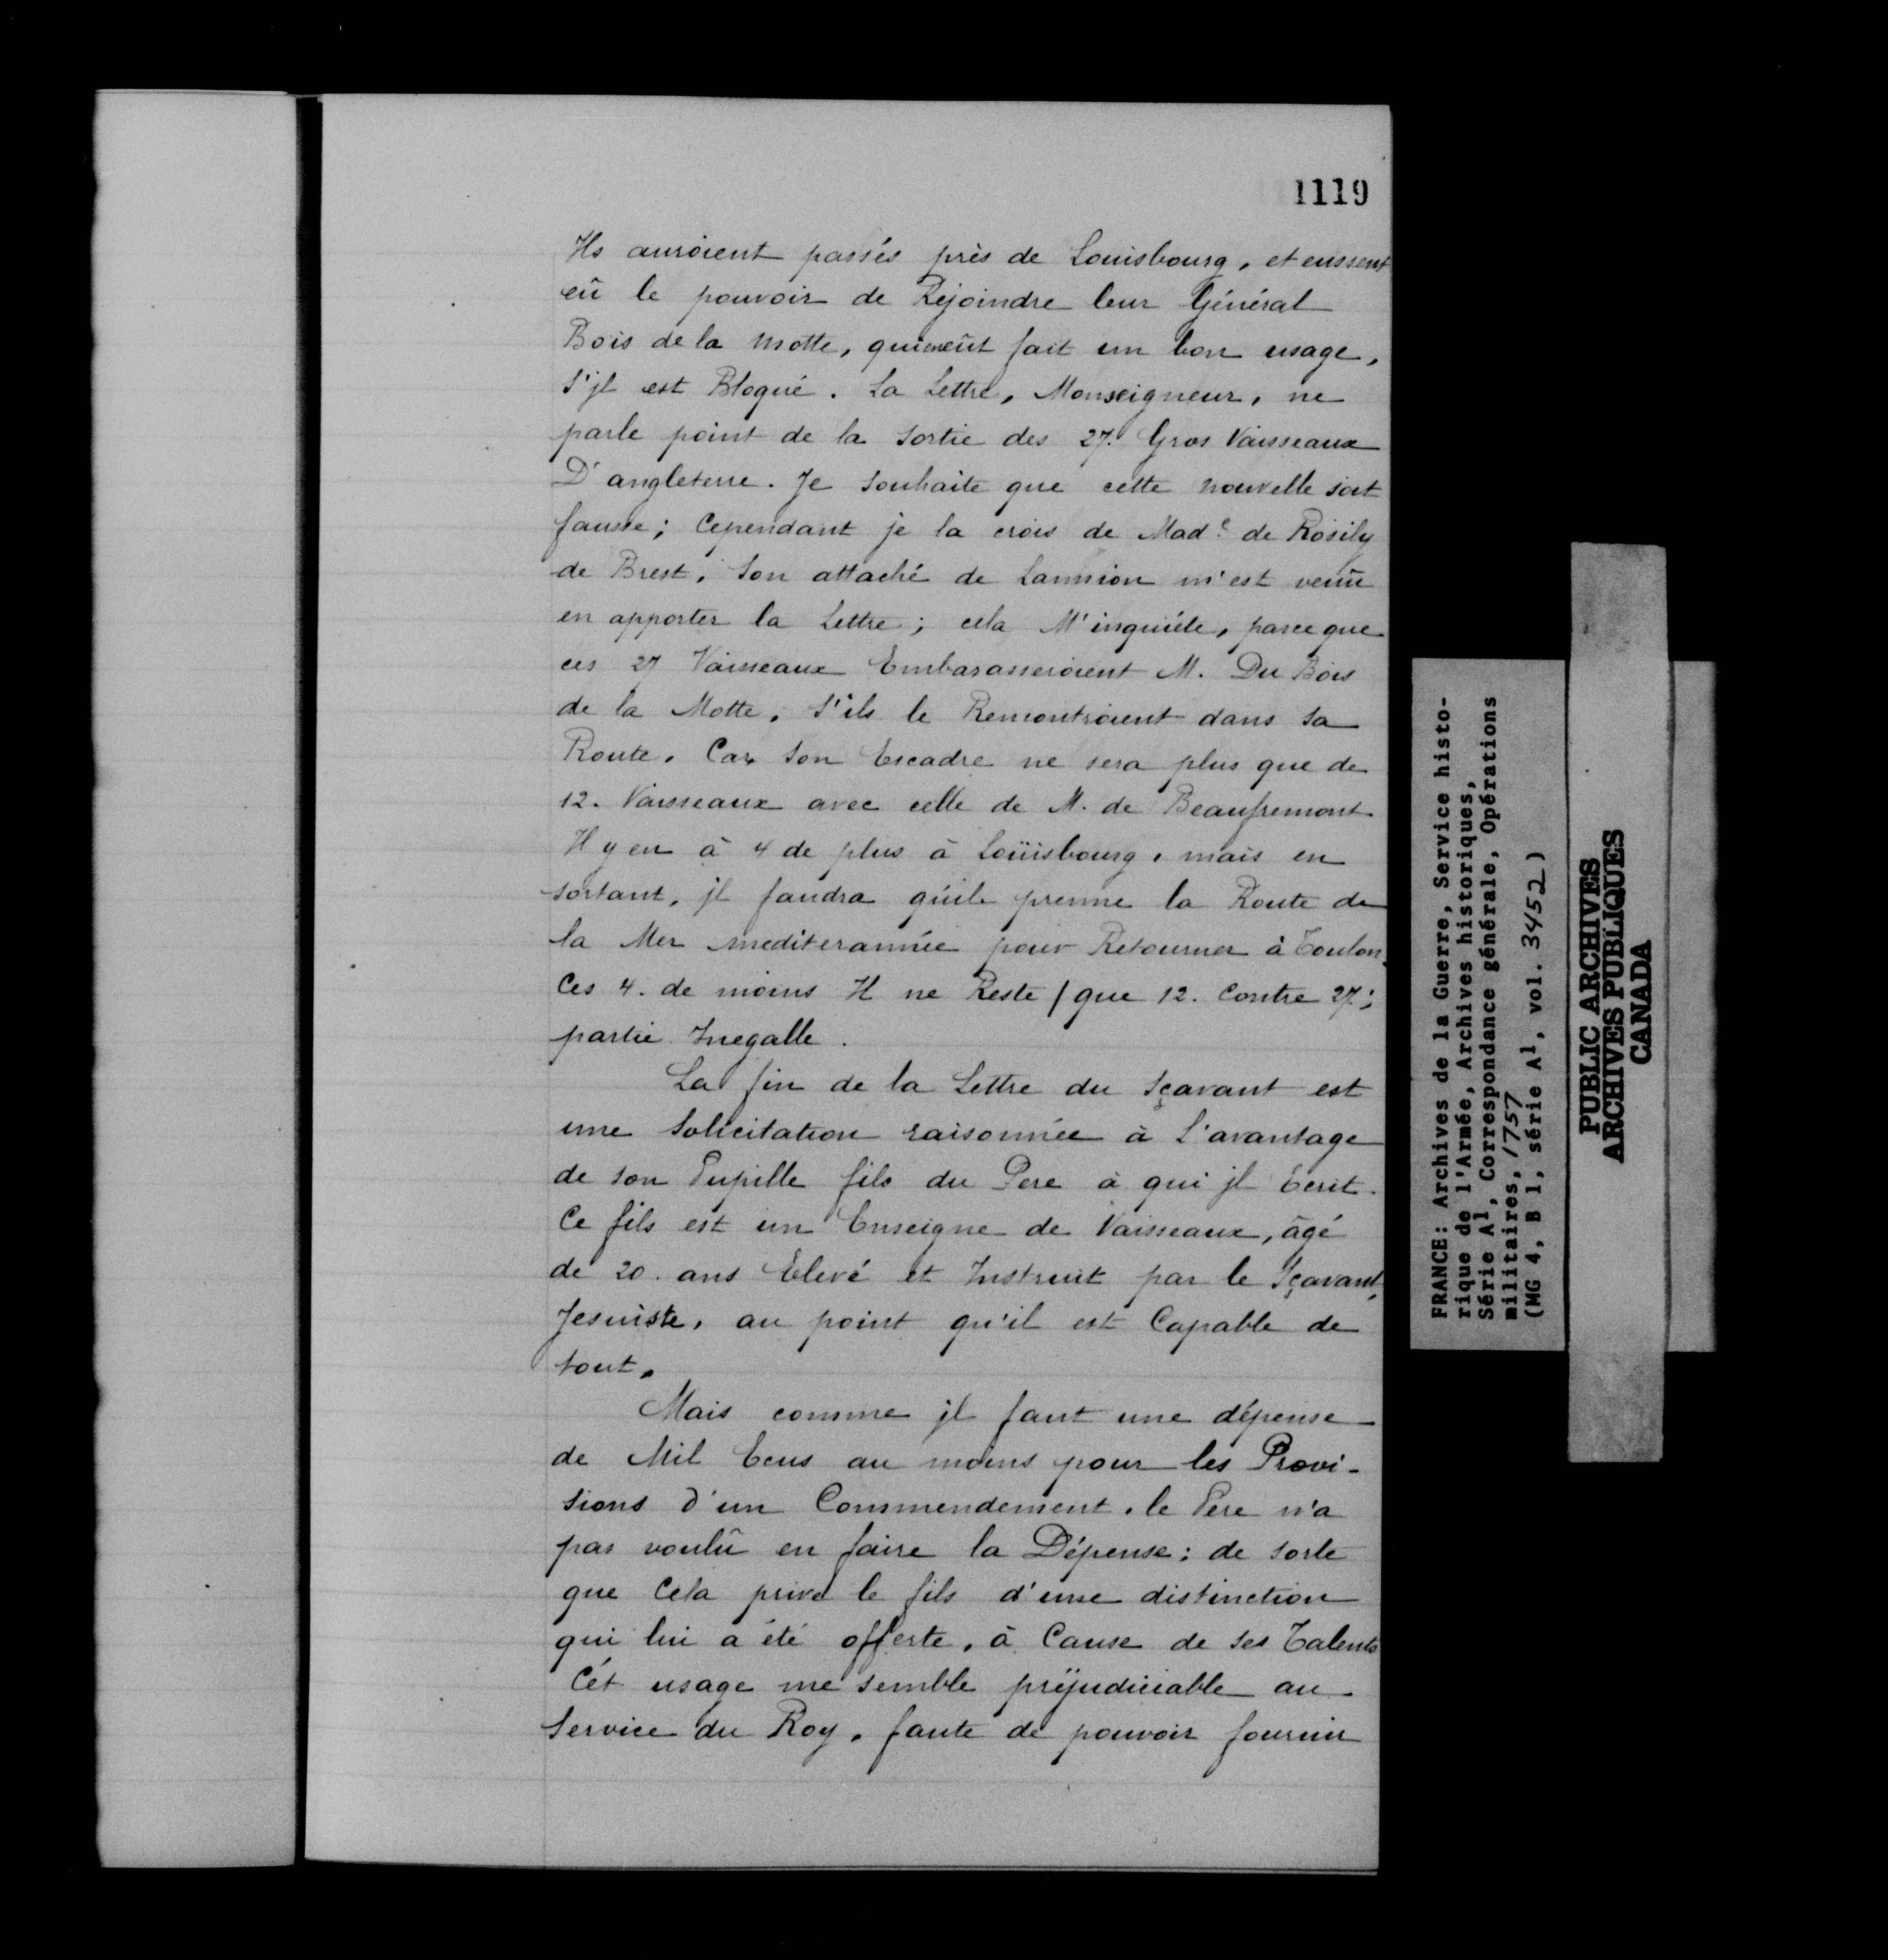 1119
Ils auroient passés près de Louisbourg, et eussent
eû le pouvoir de Rejoindre leur Général
Bois de la Motte, qui en eût fait un bon usage,
S'jl est Bloqué. La Lettre, Monseigneur, ne
parle point de la Sortie des 27. Gros Vaisseaux
D'angleterre. Je Souhaite que cette nouvelle soit
fausse; Cependant je la crois de Mad.e de Rosily
de Brest. Son attaché de Lannion m'est venû
en apporter la Lettre; cela M'inquiéte, parceque
ces 27 Vaisseaux Embarasseroient M. Du Bois
de la Motte, S'ils le Remontroient dans sa
Route. Car Son Escadre ne sera plus que de
12. Vaisseaux avec celle de M. de Beaufremont
Il y en à 4 de plus à Loüisbourg, mais en
sortant, jl faudra qu'ile prenne la Route de
la Mer mediterannée pour Retourner à Toulon.
Ces 4. de moins Il ne Reste / que 12. Contre 27;
partie Inegalle.
La fin de la Lettre du Sçavant est
une Solicitation raisonnée à L'avantage
de son Pupille fils du Pere à qui jl Ecrit.
Ce fils est un Enseigne de Vaisseaux, âgé
de 20. ans Elevé et Instruit par le Sçavant,
Jesuiste, au point qu'il est Capable de
tout.
Mais comme jl faut une dépense
de Mil Ecus au moins pour les Provi-
sions d'un Commendement, le Pere n'a
pas voulû en faire la Dépense; de sorte
que Cela prive le fils d'une distinction
qui lui a été offerte, à Cause de ses Talents
Cét usage me semble préjudiciable au
Service du Roy, faute de pouvoir fournir
FRANCE: Archives de la Guerre, Service histo-
rique de l'Armée, Archives historiques,
Série A1, Correspondance générale, Opérations
militaires, 1757
(MG 4, B 1, série A1, vol. 3452)
PUBLIC ARCHIVES
ARCHIVES PUBLIQUES
CANADA